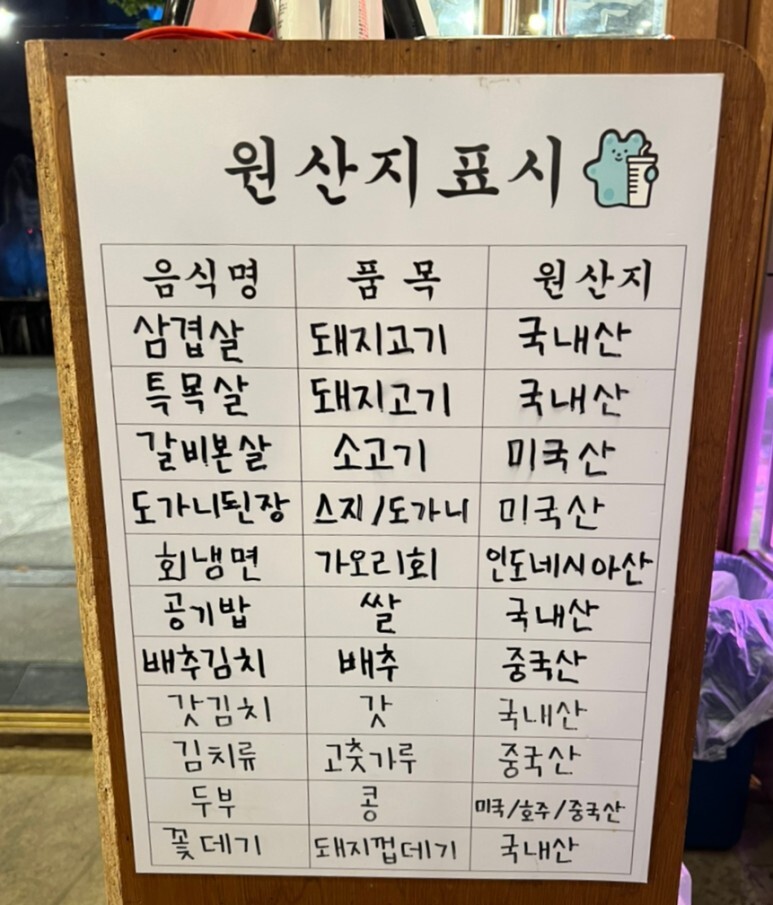 원산지표시
음식명 품목 원산지
삼겹살 돼지고기 국내산
특목살 돼지고기 국내산
갈비본살 소고기 미국산
도가니된장 스지/도가니 미국산
회냉면 가오리회 인도네시아산
공기밥 쌀 국내산
배추김치 배추 중국산
갓김치 갓 국내산
김치류 고춧가루 중국산
두부 콩 미국/호주/중국산
꽃데기 돼지껍데기 국내산